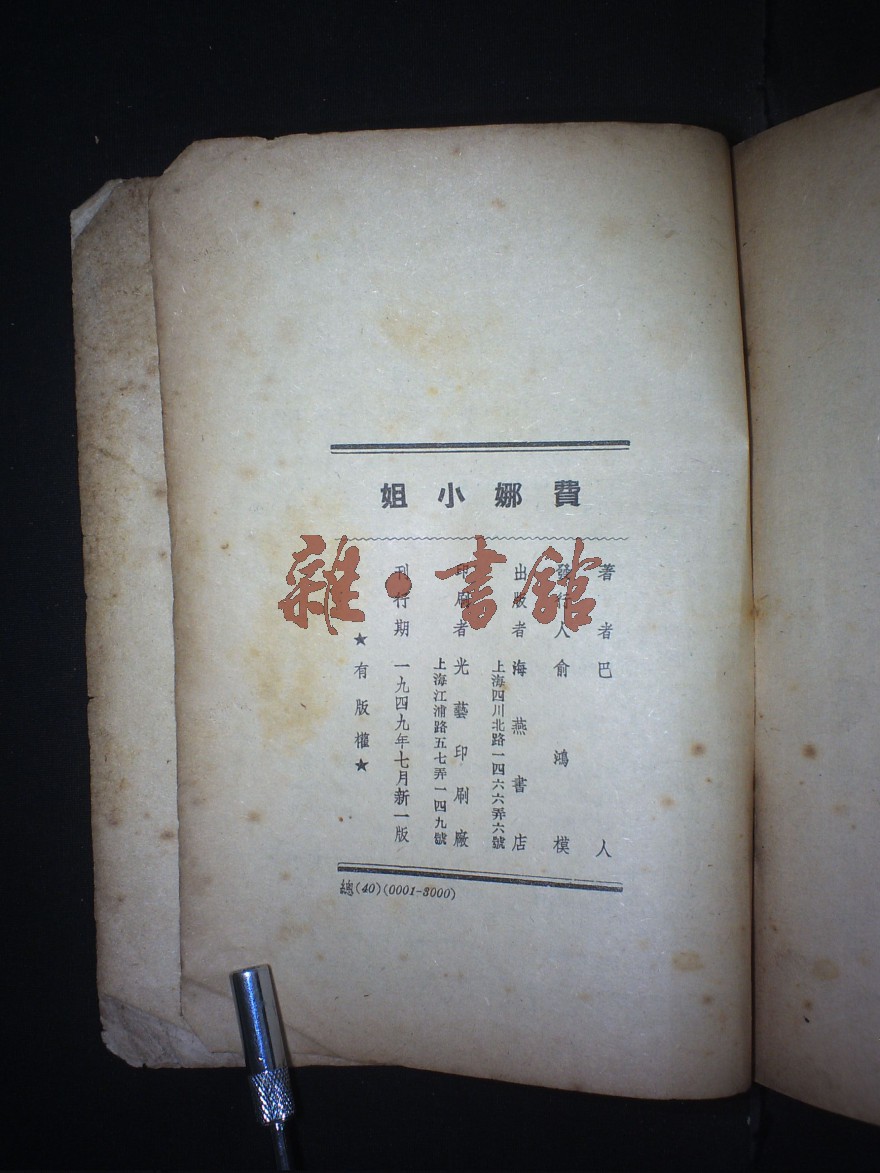 費娜小姐
著者巴人
發行人俞鴻模
出版者海燕書店
上海四川北路一四六六弄六號
印刷者光藝印刷廠
上海江浦路五七弄一四九號
刊行期一九四九年七月新一版
★有版權★
總(40)(0001-3000)
雜·書館